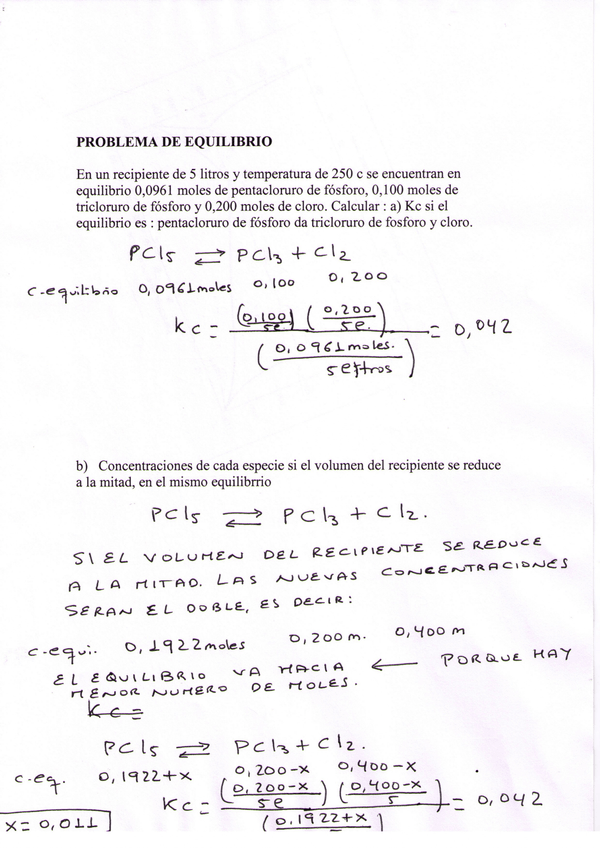 PROBLEMA DE EQUILIBRIO
En un recipiente de 5 litros y temperatura de 250 c se encuentran en
equilibrio 0,0961 moles de pentacloruro de fósforo, 0,100 moles de
tricloruro de fósforo y 0,200 moles de cloro. Calcular : a) Kc si el
equilibrio es : pentacloruro de fósforo da tricloruro de fosforo y cloro.
PCl5 ⇄ PCl3 + Cl2
C-equilibrio 0,0961moles 0,100 0,200
Kc = (0,100/5l) (0,200/5l.) / (0,0961moles./5litros) = 0,042
b) Concentraciones de cada especie si el volumen del recipiente se reduce
a la mitad, en el mismo equilibrrio
PCl5 ⇄ PCl3 + Cl2.
SI EL VOLUMEN DEL RECIPIENTE SE REDUCE
A LA MITAD. LAS NUEVAS CONCENTRACIONES
SERAN EL DOBLE, ES DECIR:
C-equi. 0,1922moles 0,200m. 0,400m
EL EQUILIBRIO VA HACIA ← PORQUE HAY
MENOR NUMERO DE MOLES.
Kc=
PCl5 ⇄ PCl3 + Cl2.
C-eq. 0,1922+x 0,200-x 0,400-x
Kc = (0,200-x/5l) (0,400-x/5) / (0,1922+x) = 0,042
x= 0,011